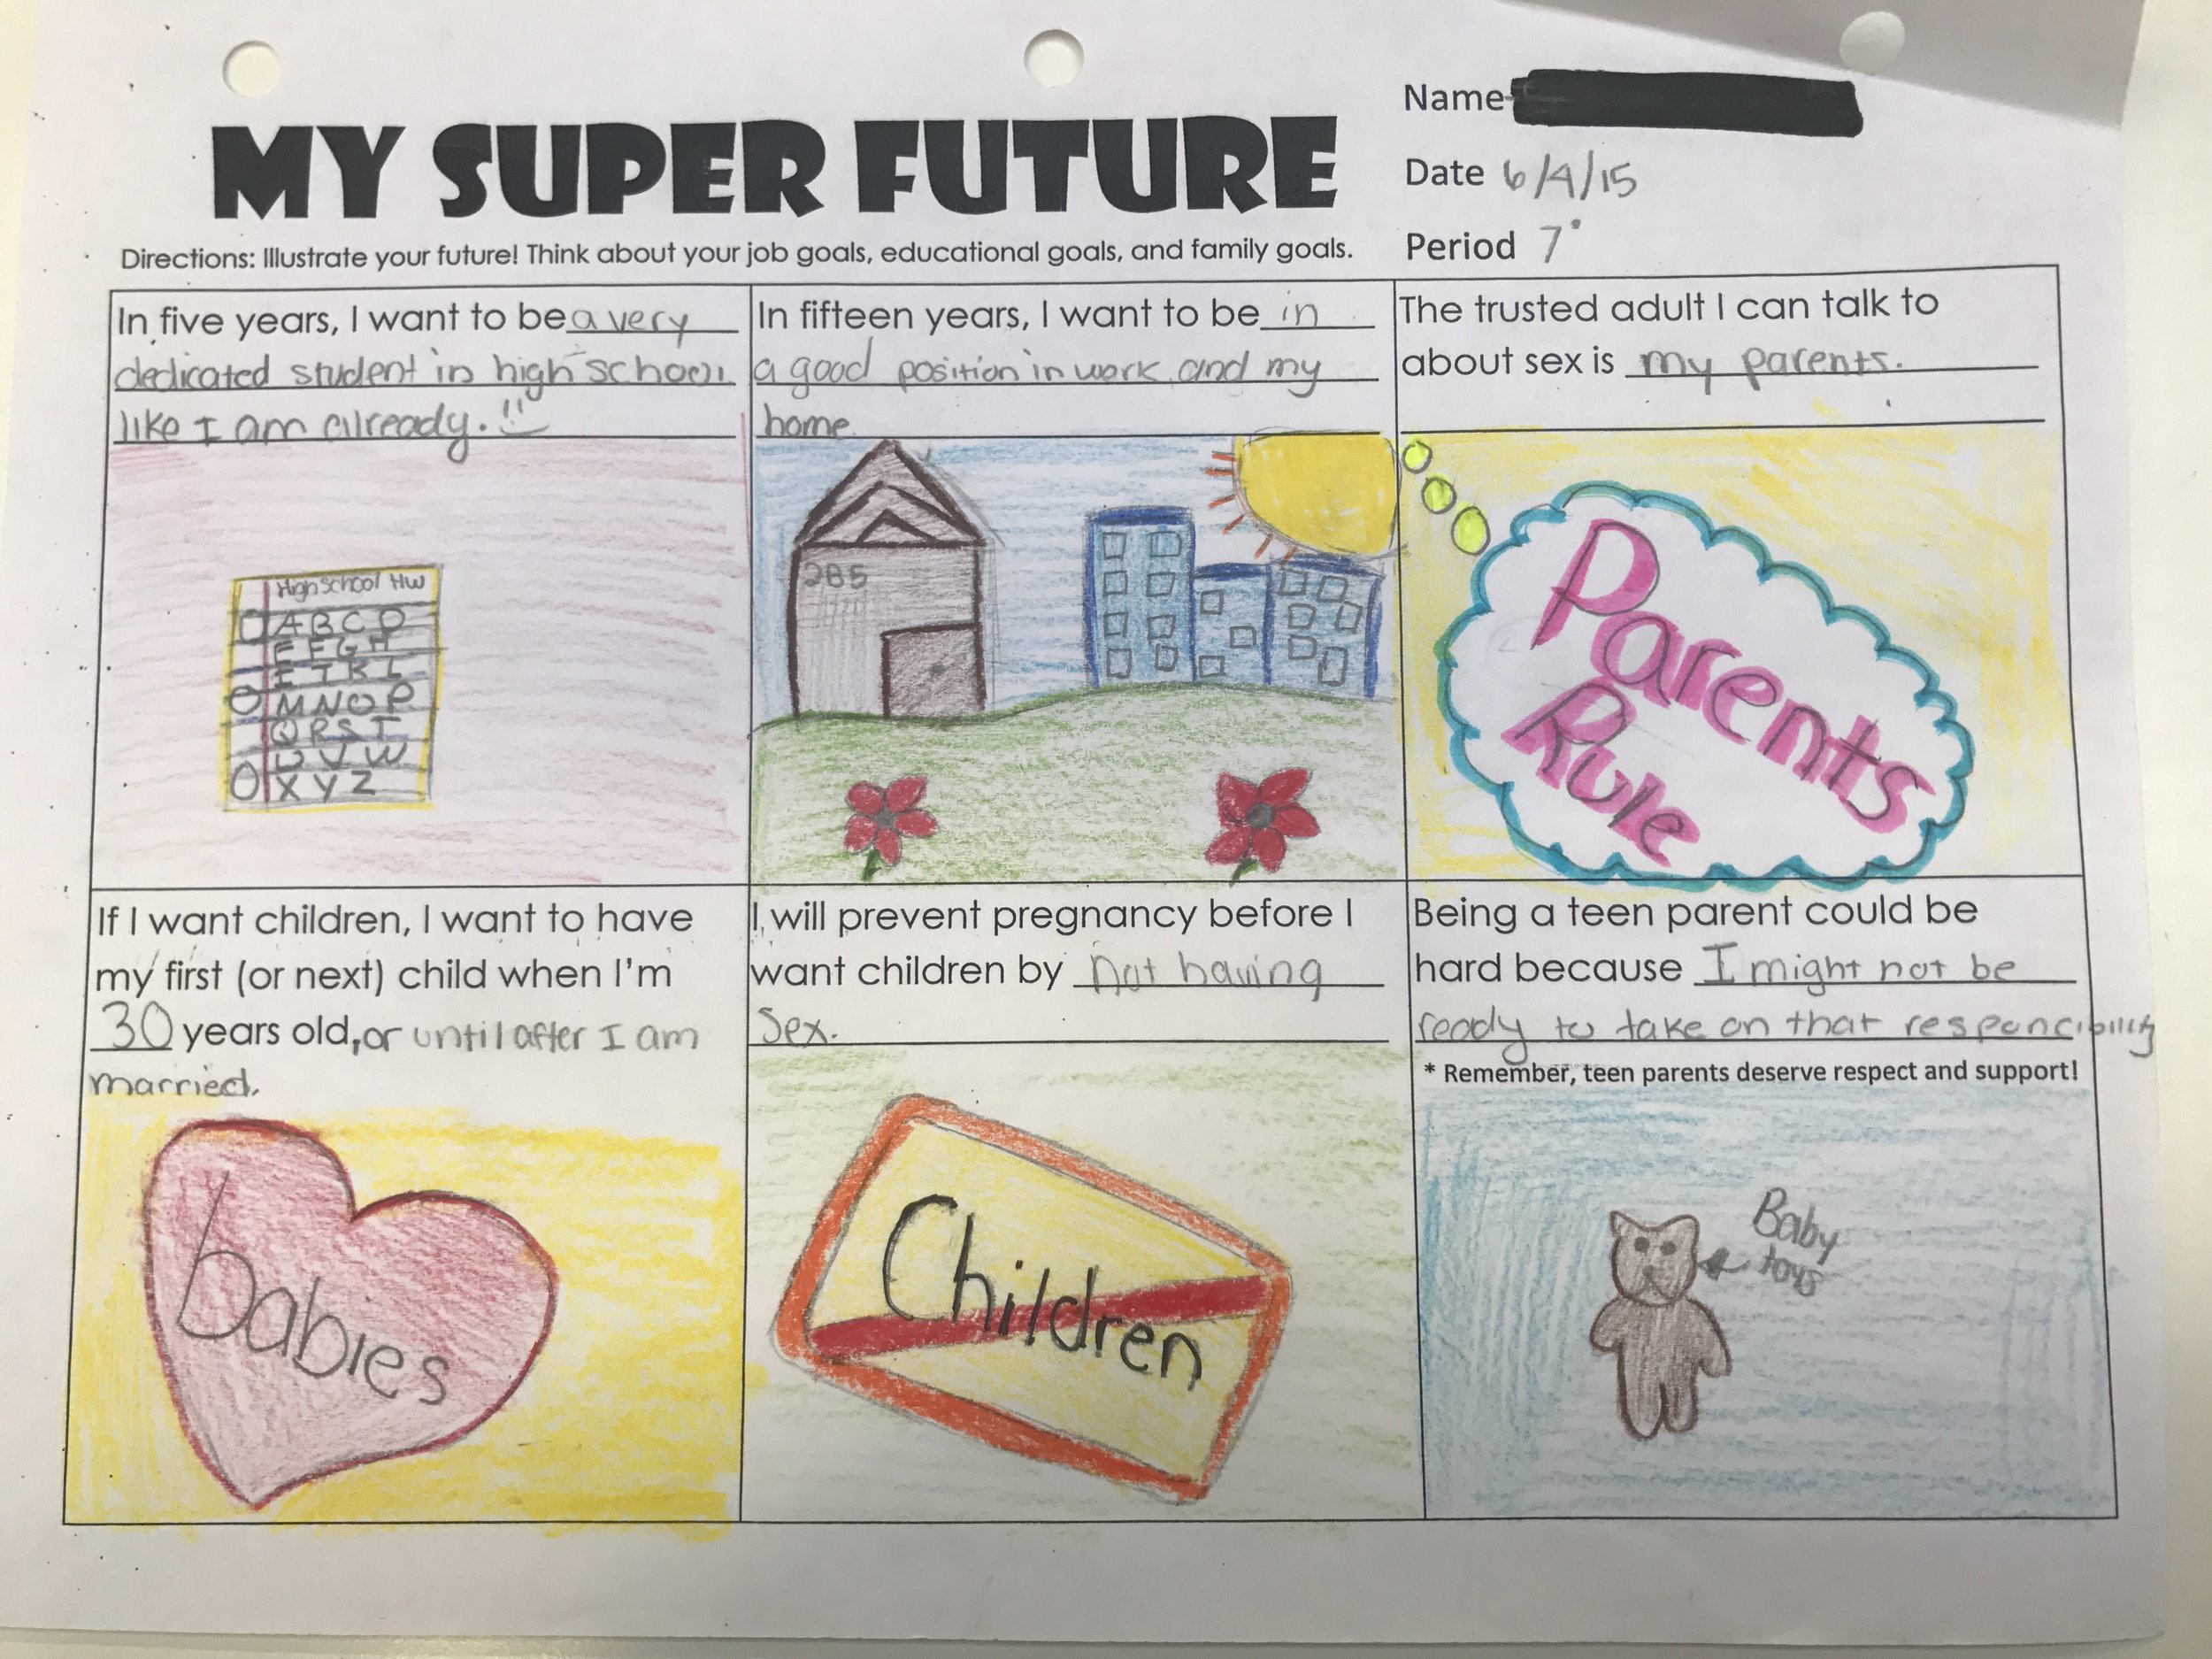 Name
MY SUPER FUTURE
Date 6/4/15
Period 7
Directions: Illustrate your future! Think about your job goals, educational goals, and family goals.
In five years, I want to be a very
dedicated student in high school
like I am already.
In fifteen years, I want to be in
a good position in work and my
home
The trusted adult I can talk to
about sex is my parents.
High School HW
A B C D
E F G H
I J K L
M N O P
Q R S T
U V W
X Y Z
285
Parents
Rule
If I want children, I want to have
my first (or next) child when I'm
30 years old, or until after I am
married.
babies
I will prevent pregnancy before I
want children by not having
sex.
Children
Being a teen parent could be
hard because I might not be
ready to take on that responcibility
* Remember, teen parents deserve respect and support!
Baby
toys